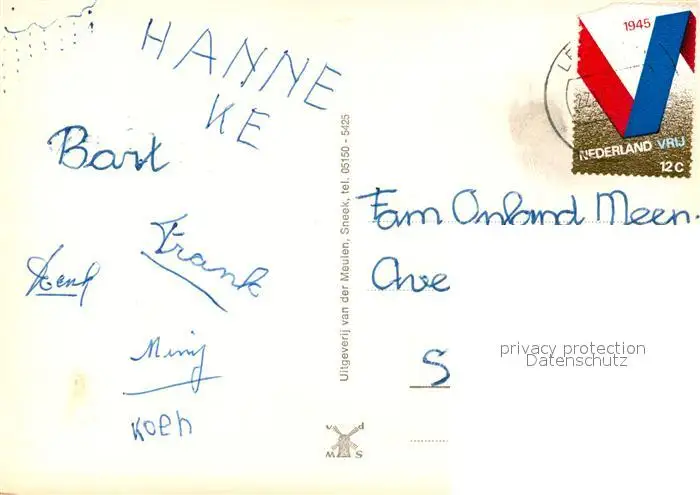 HANNE
KE
Bart
Frank
Henk
Koen
Uitgeverij van der Meulen, Sneek, tel. 05150 - 5425
v d
M S
1945
NEDERLAND VRIJ
12c
Fam Onland Meen.
Ave
S
privacy protection
Datenschutz